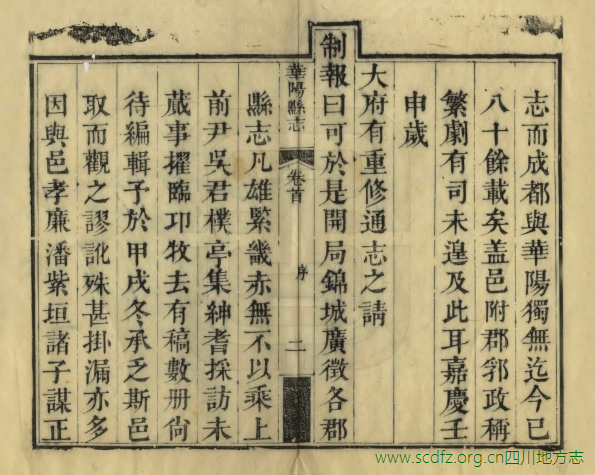 志而成都與華陽獨無迄今已
八十餘載矣盖邑附郡郛政稱
繁劇有司未遑及此耳嘉慶壬
申歲
大府有重修通志之請
制報曰可於是開局錦城廣徵各郡
華陽縣志 卷首 序 二
縣志凡雄緊畿赤無不以乘上
前尹吳君樸亭集紳耆採訪未
蕆事擢臨卭牧去有稿數册尙
待編輯予於甲戌冬承乏斯邑
取而觀之謬訛殊甚掛漏亦多
因與邑孝廉潘紫垣諸子謀正
www.scdfz.org.cn四川地方志